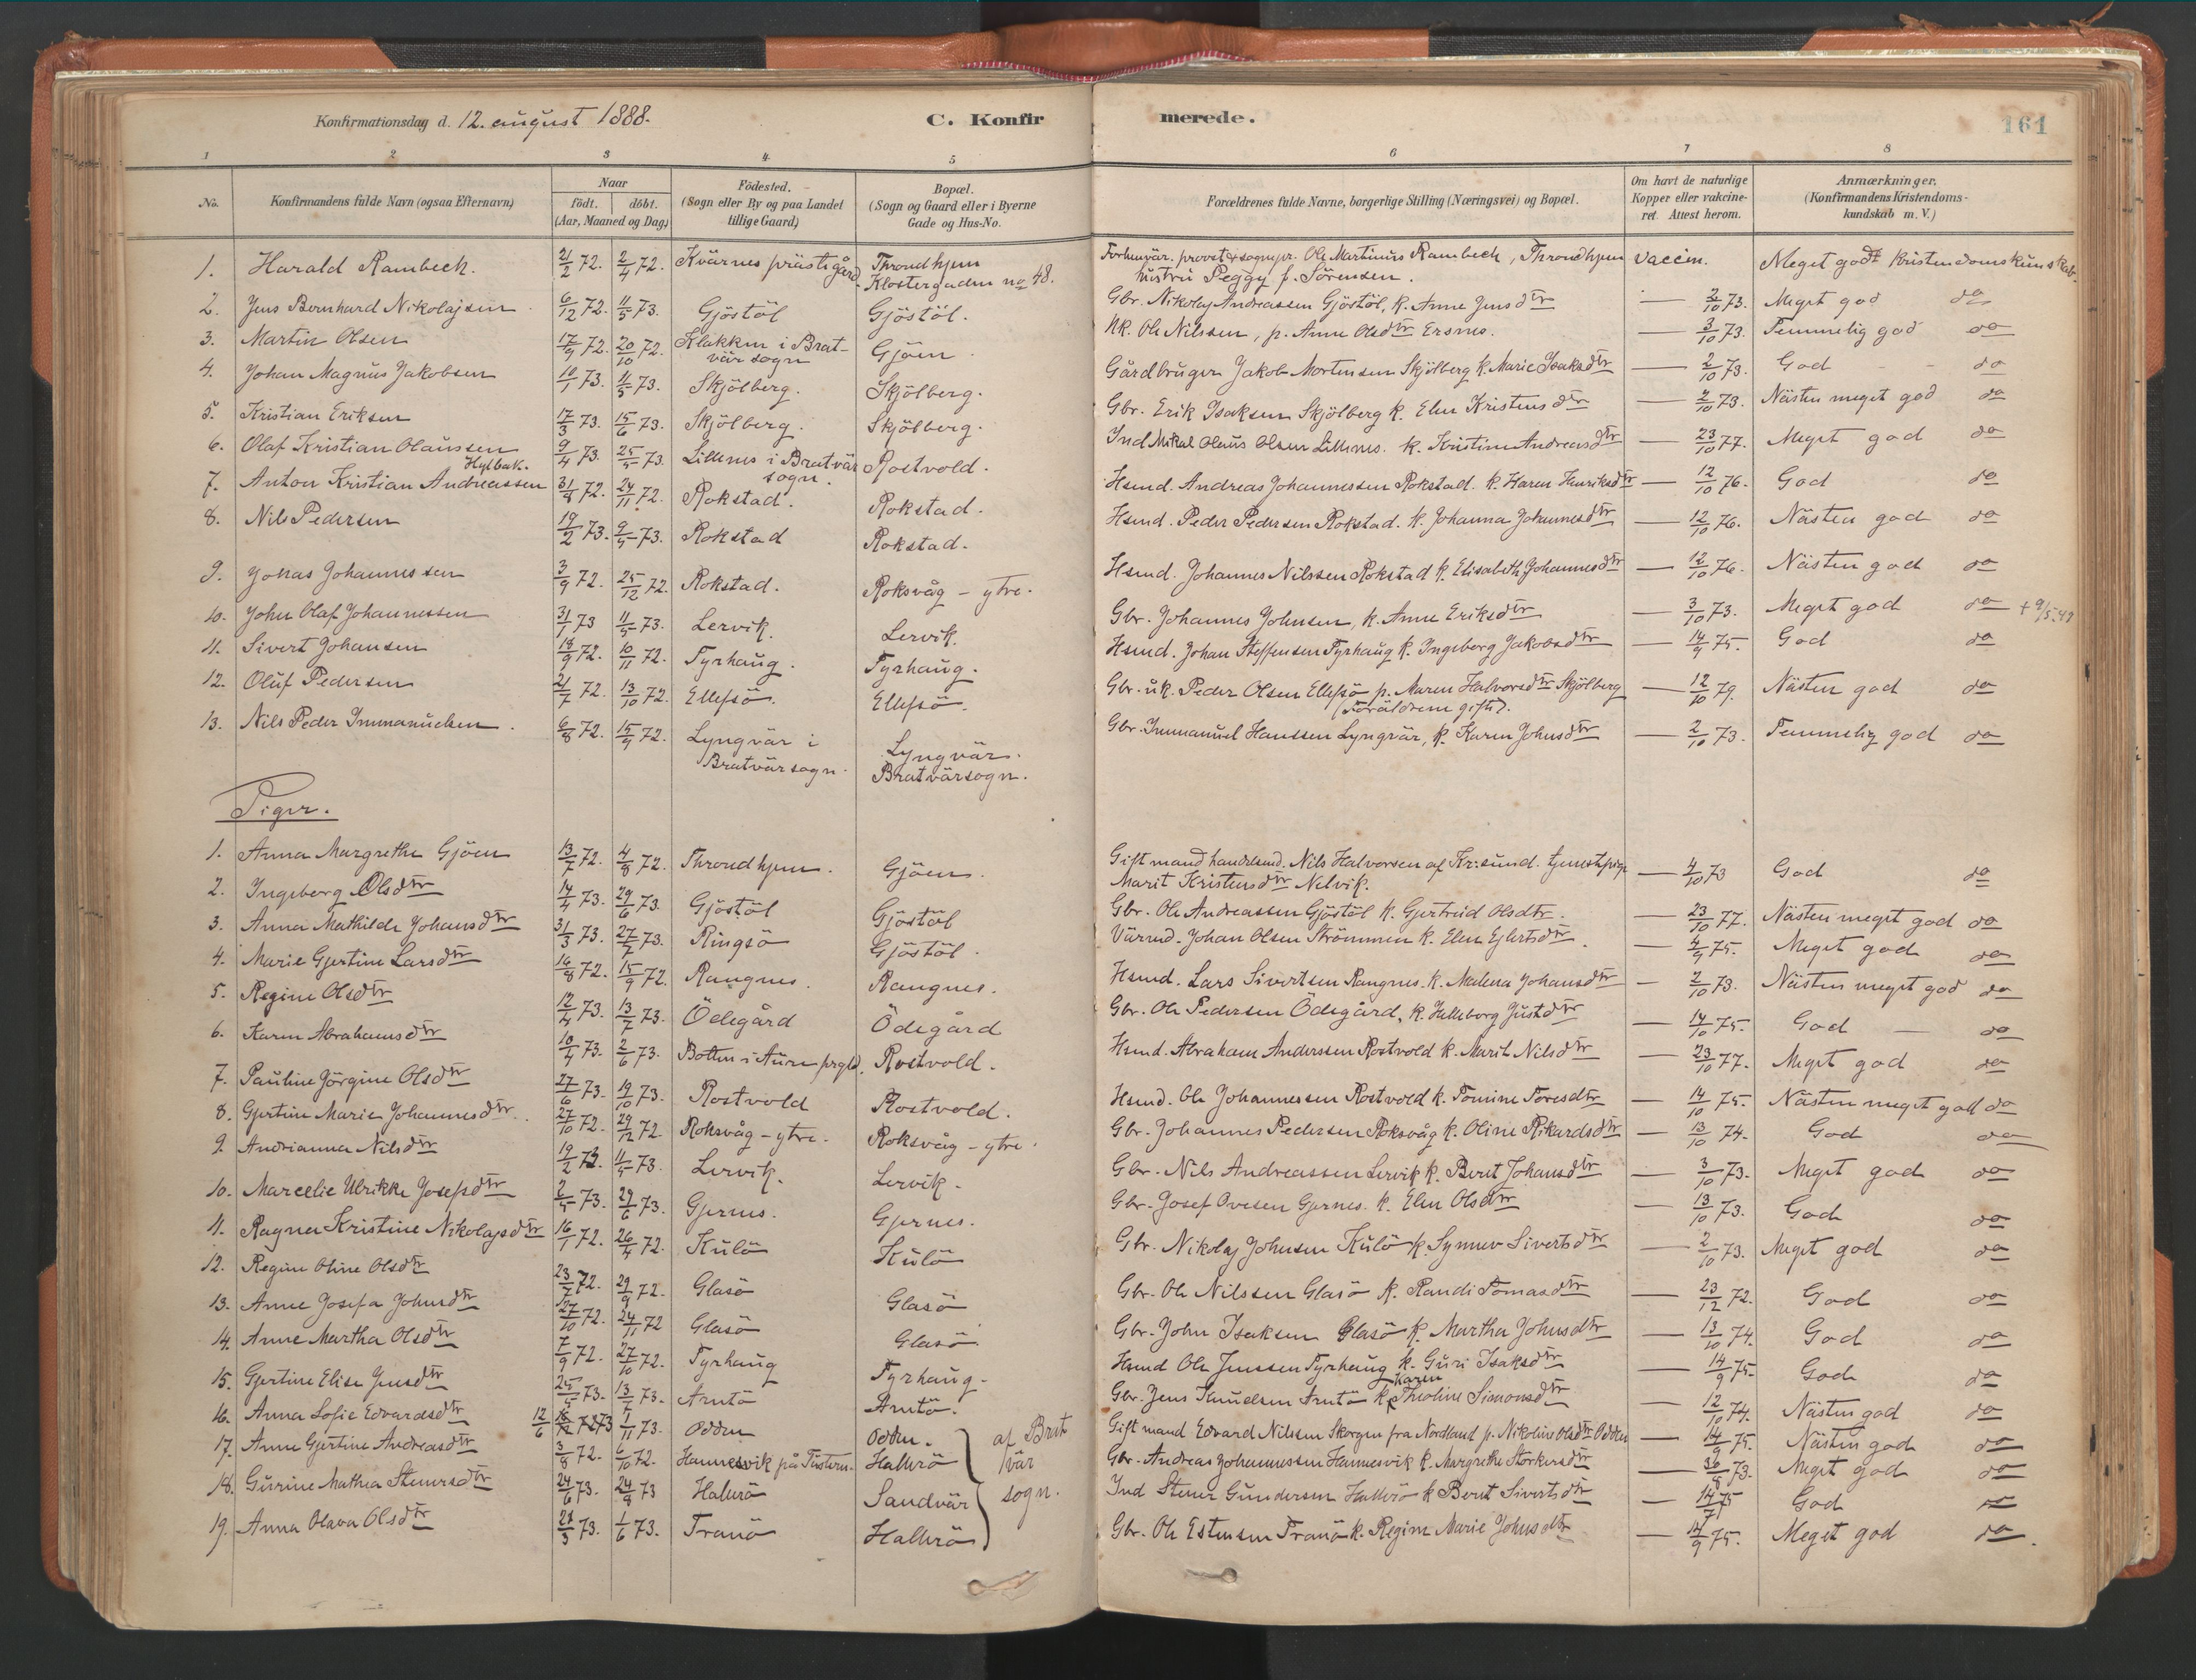 Konfirmationsdag d. 12. august 1888.
C. Konfir
merede.
161
1 2 3 4 5 6 7 8
No.
Konfirmandens fulde Navn (ogsaa Efternavn)
Naar
født. døbt.
(Aar, Maaned og Dag)
Fødested.
(Sogn eller By og paa Landet
tillige Gaard)
Bopæl.
(Sogn og Gaard eller i Byerne
Gade og Hus-No.
Forældrenes fulde Navne, borgerlige Stilling (Næringsvei) og Bopæl.
Om havt de naturlige
Kopper eller vakcine-
ret. Attest herom.
Anmærkninger.
(Konfirmandens Kristendoms-
kundskab m. V.)
1. Harald Rambech. 21/2 72. 2/4 72. Kvärnes prästigård. Throndhjem Klostergaden no 48. Forhenvär. provst & sognepr. Ole Martinus Rambech, Throndhjem hustru Peggy f. Sörensen. vaccin. Meget godt kristendomskunskab.
2. Jens Bernhard Nikolajsen 6/12 72. 11/5 73. Gjöstöl Gjöstöl. Gbr. Nikolaj Andreassen Gjöstöl, k. Anne Jensdtr — 2/10 73. Meget god do
3. Martin Olsen 17/9 72. 20/10 72. Klakken i Brat-vär sogn Gjöen. UK. Ole Nilssen, p. Anne Olsdtr Ersnes. — 3/10 73. Temmelig god do
4. Johan Magnus Jakobsen 10/1 73. 11/5 73. Skjölberg. Skjölberg. Gårdbruger Jakob Mortensen Skjölberg k. Marie Isaksdtr — 2/10 73. God do
5. Kristian Eriksen 17/3 73. 15/6 73. Skjölberg. Skjölberg. Gbr. Erik Isaksen Skjölberg k. Elen Kristensdtr — 2/10 73. Nästen meget god do
6. Olaf Kristian Olaussen Hylbak. 9/4 73. 25/5 73. Lillenes i Bratvär sogn. Rostvold. Ind Mikal Olaus Olsen Lillenes. k. Kristine Andreasdtr — 23/10 77. Meget god do
7. Anton Kristian Andreassen 31/8 72. 24/11 72. Rokstad. Rokstad. Hsmd. Andreas Johannessen Rokstad. k. Karen Henriksdtr — 12/10 76. God do
8. Nils Pedersen 19/2 73. 9/5 73. Rokstad Rokstad. Hsmd. Peder Pedersen Rokstad. k. Johanna Johannesdtr — 12/10 76. Nästen god do
9. Jonas Johannessen 3/9 72. 25/12 72. Rokstad. Roksvåg - ytre. Hsmd. Johannes Nilssen Rokstad k. Elisabeth Johannesdtr — 12/10 76. Nästen god do
10. John Olaf Johannessen 31/1 73 11/5 73. Lervik. Lervik. Gbr. Johannes Johnsen, k. Anne Eriksdtr — 3/10 73. Meget god do + 9/5.49
11. Sivert Johansen 18/9 72. 10/11 72. Tyrhaug. Tyrhaug. Hsmd. Johan Steffensen Tyrhaug k. Ingeborg Jakobsdtr — 14/9 75. God do
12. Oluf Pedersen 21/7 72. 13/10 72. Ellefsö. Ellefsö. Gbr. uk. Peder Olsen Ellefsö p. Maren Halvorsdtr Skjölberg (Foräldrene gifte). — 12/10 79. Nästen god do
13. Nils Peder Immanuelsen. 6/8 72. 15/9 72. Lyngvär i Bratvärsogn. Lyngvär. Bratvärsogn. Gbr. Immanuel Hanssen Lyngvär, k. Karen Johnsdtr — 2/10 73. Temmelig god do
Piger.
1. Anna Margrethe Gjöen 13/7 72. 4/8 72. Throndhjem. Gjöen. Gift mand handelsmd. Nils Halvorsen af Kr:sund. tjenestpige Marit Kristensdtr Nelvik. — 4/10 73 God do
2. Ingeborg Olsdtr 14/4 73. 29/6 73. Gjöstöl Gjöstöl Gbr. Ole Andreassen Gjöstöl k. Gjertrud Olsdtr. — 23/10 77. Nästen meget god do
3. Anna Mathilde Johansdtr 31/3 73. 27/7 73. Ringsö Gjöstöl. Värmd. Johan Olsen Strömmen k. Elen Ejlertsdtr. — 4/9 75. Meget god do
4. Marie Gjertine Larsdtr 16/8 72. 15/9 72. Rangnes. Rangnes. Hsmd. Lars Sivertsen Rangnes. k. Malena Johansdtr — 2/10 73. Nästen meget god do
5. Regine Olsdtr 12/4 73. 13/7 73. Ödegård Ödegård Gbr. Ole Pedersen Ödegård, k. Helleborg Justdtr — 14/10 75. God — do
6. Karen Abrahamsdtr 10/4 73. 2/6 73. Botten i Aure prgld. Rostvold. Hsmd. Abraham Anderssen Rostvold k. Marit Nilsdtr — 23/10 77. Meget god do
7. Pauline Jörgine Olsdtr 27/6 73. 19/10 73. Rostvold Rostvold. Hsmd. Ole Johannessen Rostvold k. Tomine Toresdtr — 14/10 75. Nästen meget god do
8. Gjertine Marie Johannesdtr. 27/10 72. 29/12 72. Roksvåg - ytre. Roksvåg - ytre. Gbr. Johannes Pedersen Roksvåg k. Oline Rikardsdtr — 13/10 74. God do
9. Andrianna Nilsdtr 19/2 73. 11/5 73. Lervik. Lervik. Gbr. Nils Andreassen Lervik k. Beret Johansdtr — 3/10 73. Meget god do
10. Marcelie Ulrikke Josefsdtr 2/5 73. 29/6 73. Gjernes. Gjernes. Gbr. Josef Ovesen Gjernes. k. Elen Olsdtr — 13/10 73. God do
11. Ragna Kristine Nikolajsdtr 16/1 72. 26/4 72. Kulö Kulö Gbr. Nikolaj Johnsen Kulö k. Synnev Sivertsdtr — 2/10 73. Meget god do
12. Regine Oline Olsdtr 23/7 72. 29/9 72. Glasö Glasö Gbr. Ole Nilssen Glasö k. Randi Tomasdtr — 23/12 72. God do
13. Anne Josefa Johnsdtr 27/10 72. 24/11 72 Glasö Glasö Gbr. John Isaksen Glasö k. Martha Johnsdtr — 13/10 74. God do
14. Anne Martha Olsdtr 7/9 72. 27/10 72. Tyrhaug Tyrhaug. Hsmd Ole Jenssen Tyrhaug k. Guri Isaksdtr — 14/9 75. God do
15. Gjertine Elise Jensdtr 25/5 73. 13/7 73. Arntö Arntö. Gbr. Jens Knudsen Arntö k. Karen Theoline Simonsdtr — 12/10 74. Nästen god do
16. Anna Sofie Edvardsdtr 12/6 73 1/11 73. Odden Odden. Gift mand Edvard Nilssen Skorgen fra Nordland p. Nikoline Olsdtr Odden — 14/9 75. Nästen god do
17. Anne Gjertine Andreasdtr 3/8 72. 6/10 72. Hannesvik på Tustern. Hallerö Gbr. Andreas Johannessen Hannesvik k. Margrethe Storkersdtr — 8 73. Meget god do
18. Gurine Mathea Stenersdtr 24/6 73. 24/8 73 Hallerö Sandvär Ind Stener Gundersen Hallerö k Beret Sivertsdtr — 14/7 75 God do
19. Anna Olava Olsdtr 21/3 73. 1/6 73. Tranö Hallerö Gbr. Ole Estensen Tranö k. Regine Marie Johnsdtr — 14/9 75. Meget god do.
af Brat
vär
sogn.